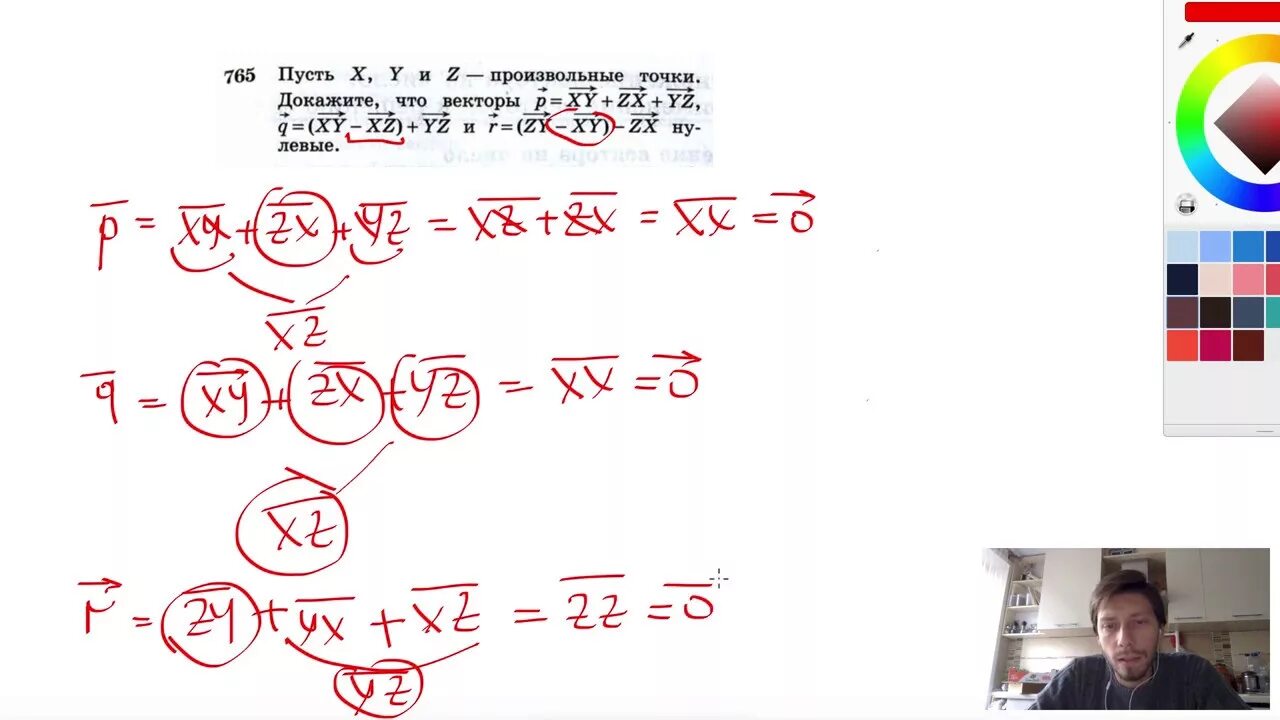 765 Пусть X, Y и Z — произвольные точки.
Докажите, что векторы p⃗ = XY⃗ + ZX⃗ + YZ⃗,
q⃗ = (XY⃗ − XZ⃗) + YZ⃗ и r⃗ = (ZY⃗ − XY⃗) − ZX⃗ ну-
левые.
p̅ = X̅Y̅ + Z̅X̅ + Y̅Z̅ = X̅Z̅ + Z̅X̅ = X̅X̅ = 0⃗
X̅Z̅
q̅ = XY⃗ + Z̅X̅ + Y̅Z̅ = X̅X̅ = 0⃗
XZ⃗
r⃗ = Z̅Y̅ + Y̅X̅ + X̅Z̅ = Z̅Z̅ = 0̅
Y̅Z̅